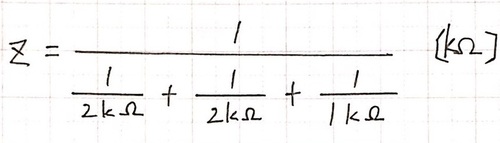 Z = \frac{1}{\frac{1}{2kΩ} + \frac{1}{2kΩ} + \frac{1}{1kΩ}} [kΩ]